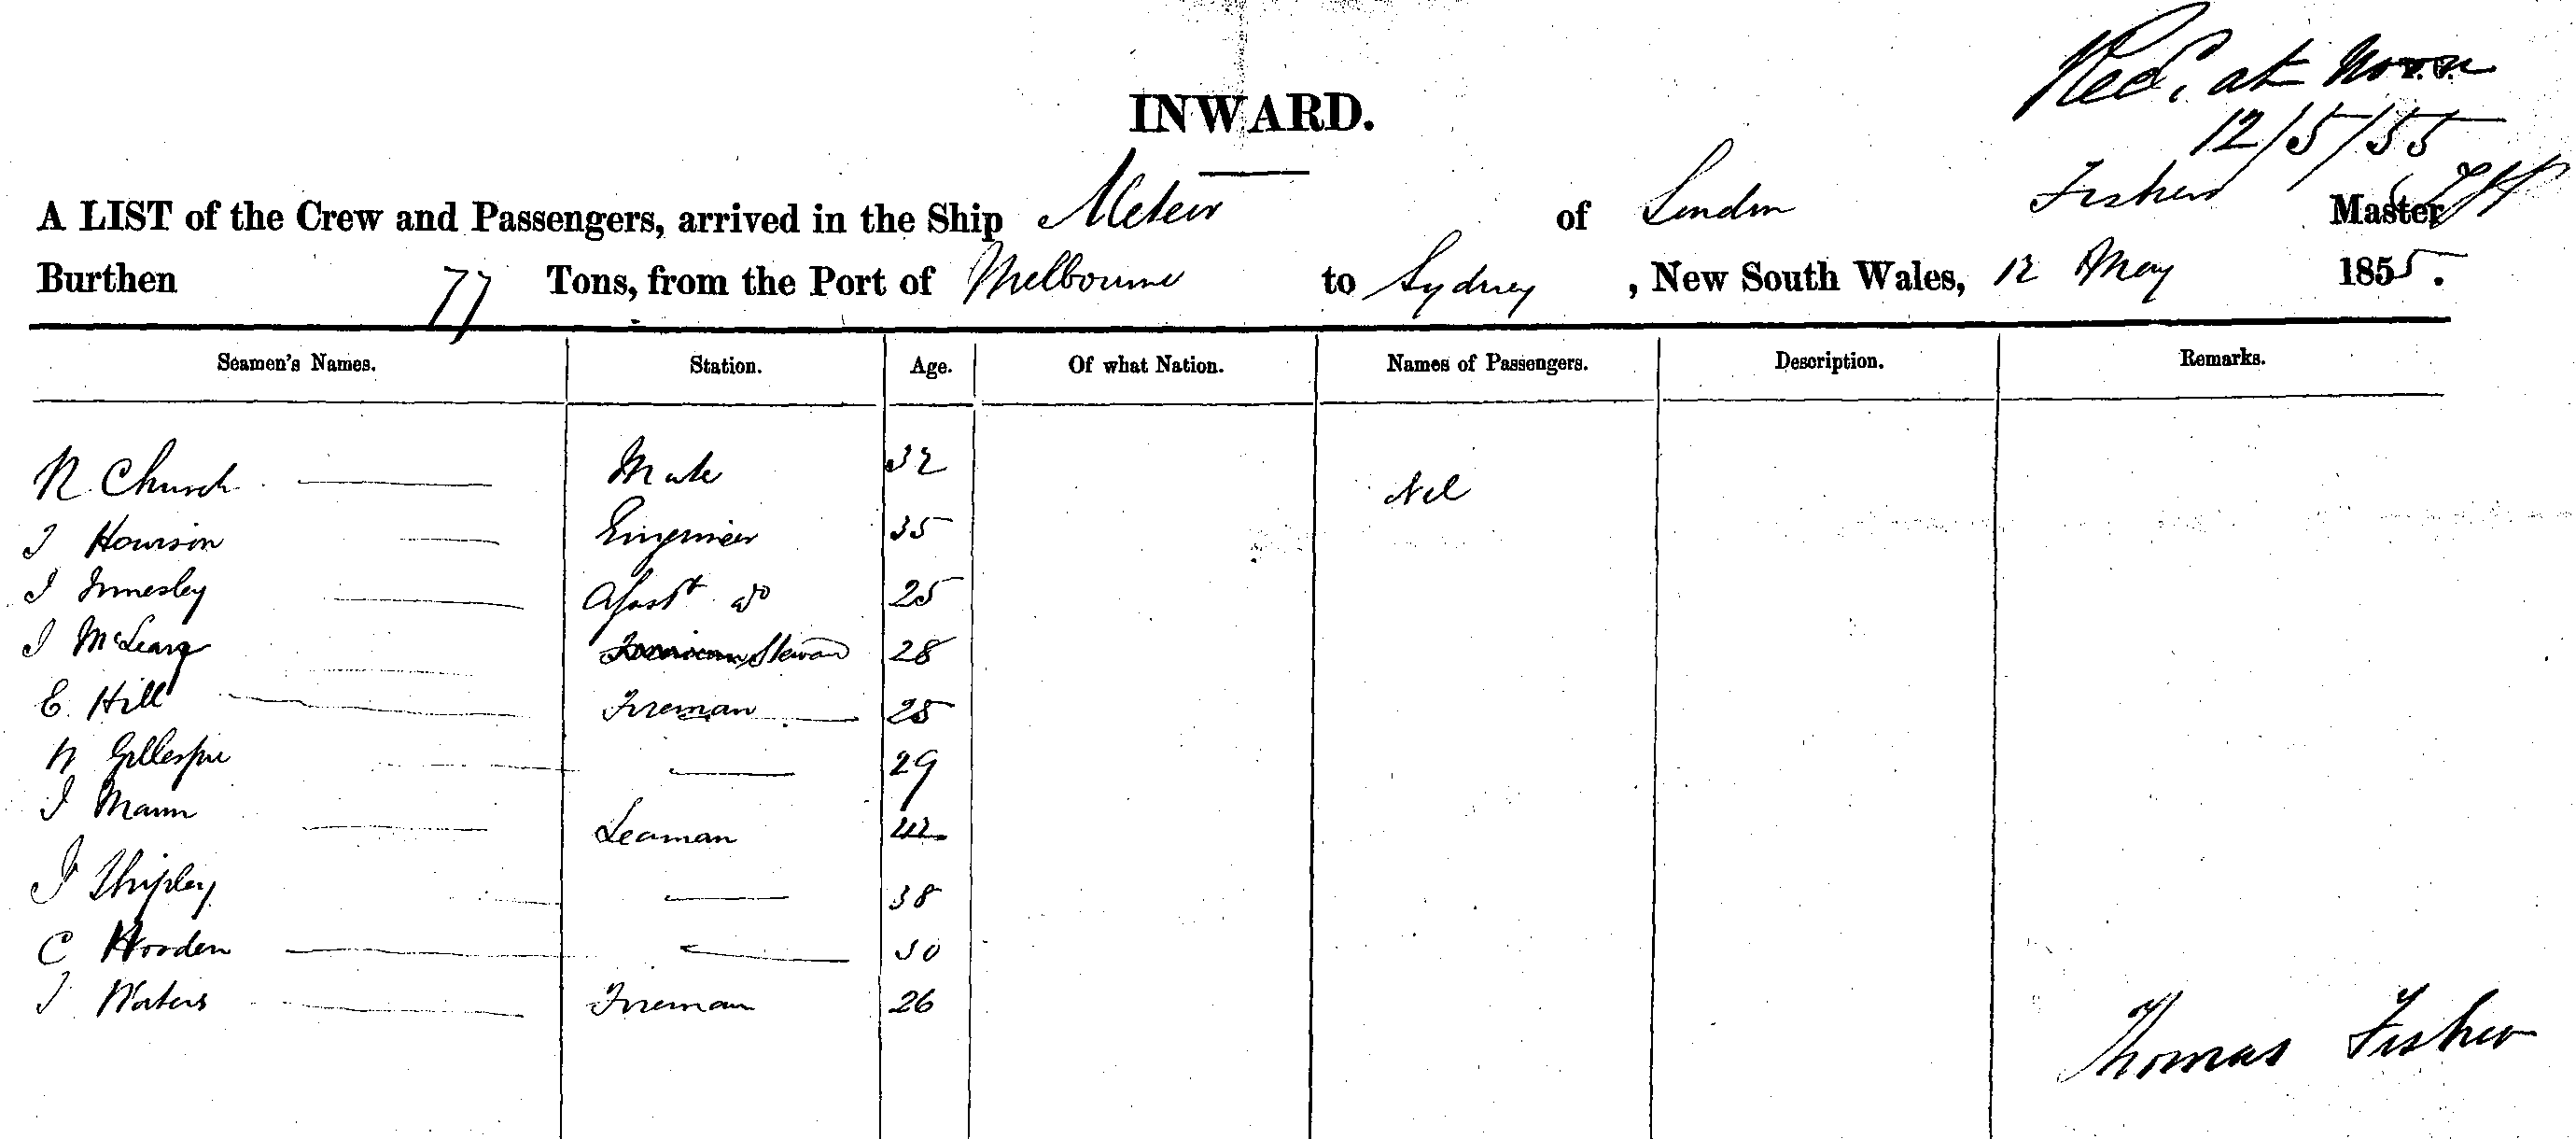 Recd. at Noon
12/5/55
INWARD.
A LIST of the Crew and Passengers, arrived in the Ship Meteor of London Fisher Master
Burthen 77 Tons, from the Port of Melbourne to Sydney, New South Wales, 12 May 1855.
Seamen's Names. Station. Age. Of what Nation. Names of Passengers. Description. Remarks.
N. Church Mate 32 Nil
J Howison Engineer 35
J Inmesley Assst do 25
J Steward 28
E. Hill Fireman 25
W Gillespie 29
J Mann Seaman 42
J Shipley 38
C Wooden 30
J Waters Fireman 26
Thomas Fisher